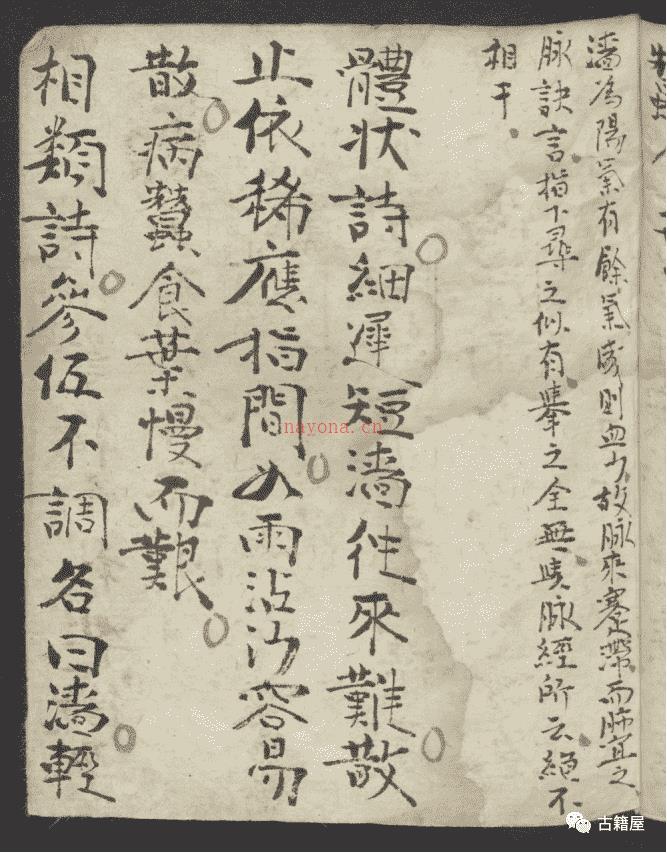 濇為陽氣有餘氣盛則血少故脉來蹇滯而肺宜之
脉訣言指下尋之似有舉之全無與脉經所云絕不
相干
體状詩細遲短濇徃來難散
止依稀應指間如雨沾沙容易
散病蠶食葉慢而艱
相類詩參伍不調名曰濇輕
nayona.cn
古籍屋